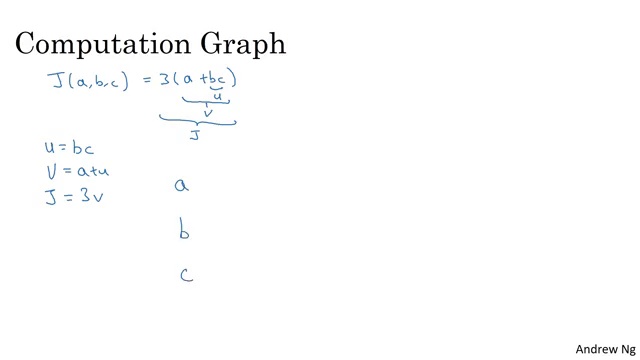 Computation Graph
J(a,b,c) = 3(a+bc)
u
v
J
u = bc
v = a+u
J = 3v
a
b
c
Andrew Ng